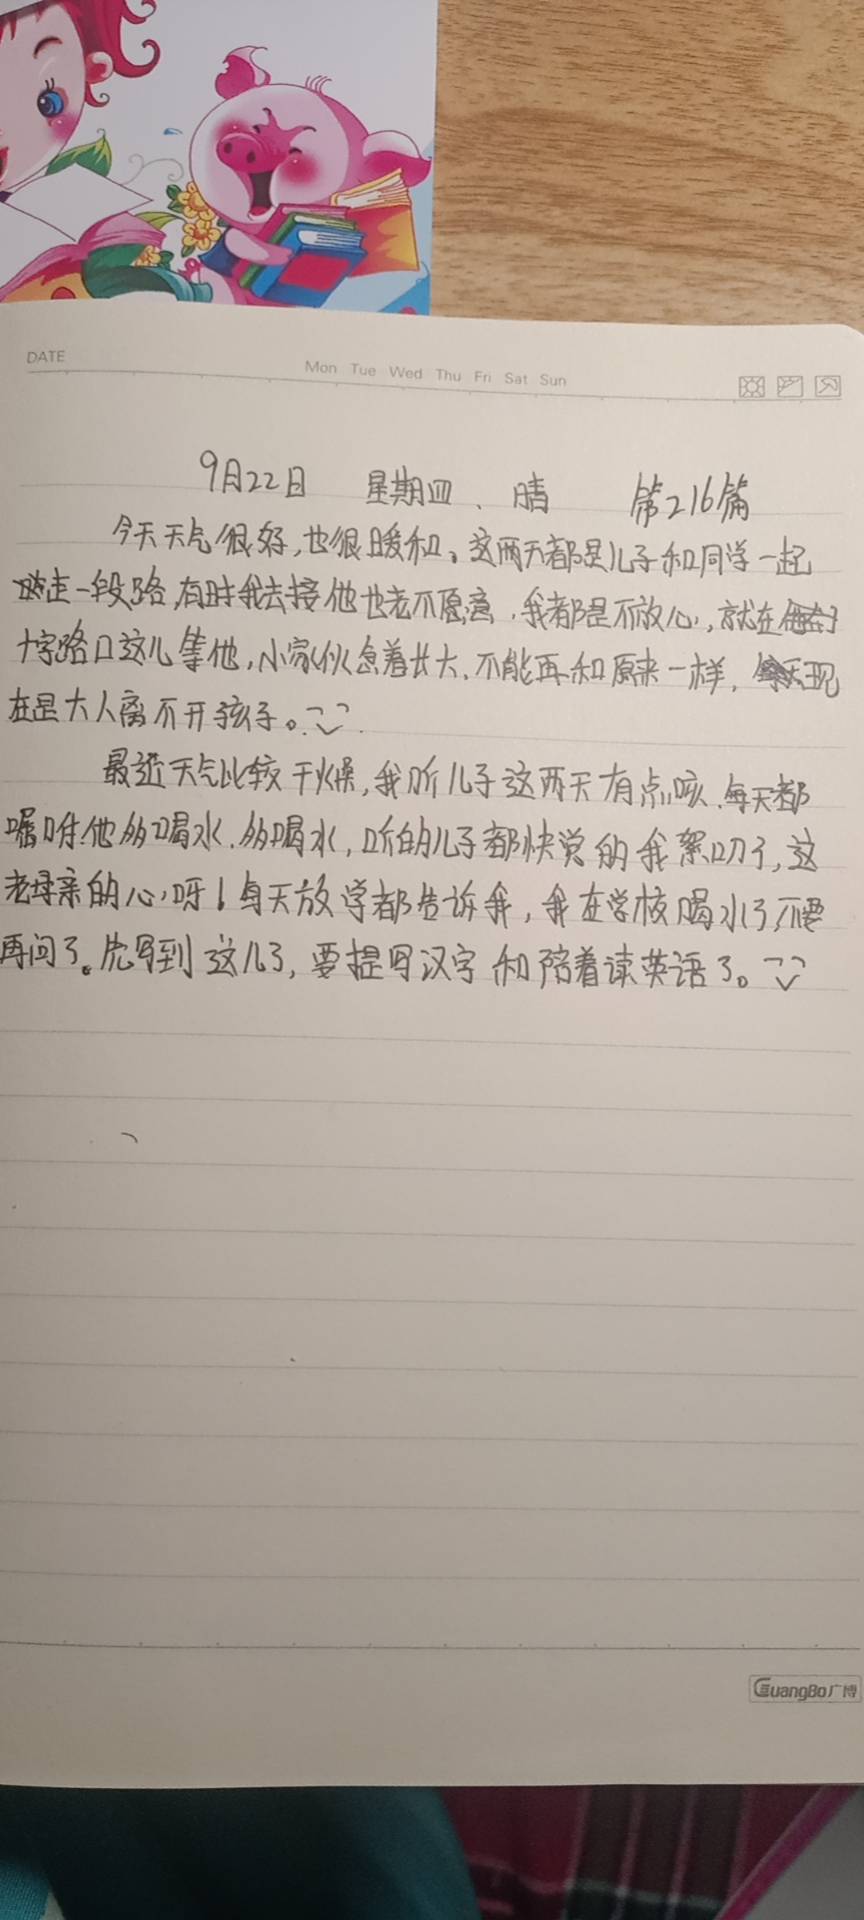 DATE
Mon Tue Wed Thu Fri Sat Sun
9月22日 星期四、晴 第216篇
今天天气很好,也很暖和。这两天都是儿子和同学一起
走一段路,有时我去接他也老不愿意,我都是不放心,就在
十字路口这儿等他,小家伙急着长大,不能再和原来一样,现
在是大人离不开孩子。
最近天气比较干燥,我听儿子这两天有点咳,每天都
嘱咐他多喝水,多喝水,听的儿子都快觉的我絮叨了,这
老母亲的心呀!每天放学都告诉我,我在学校喝水了,不要
再问了。先写到这儿了,要提写汉字和陪着读英语了。
GuangBo广博